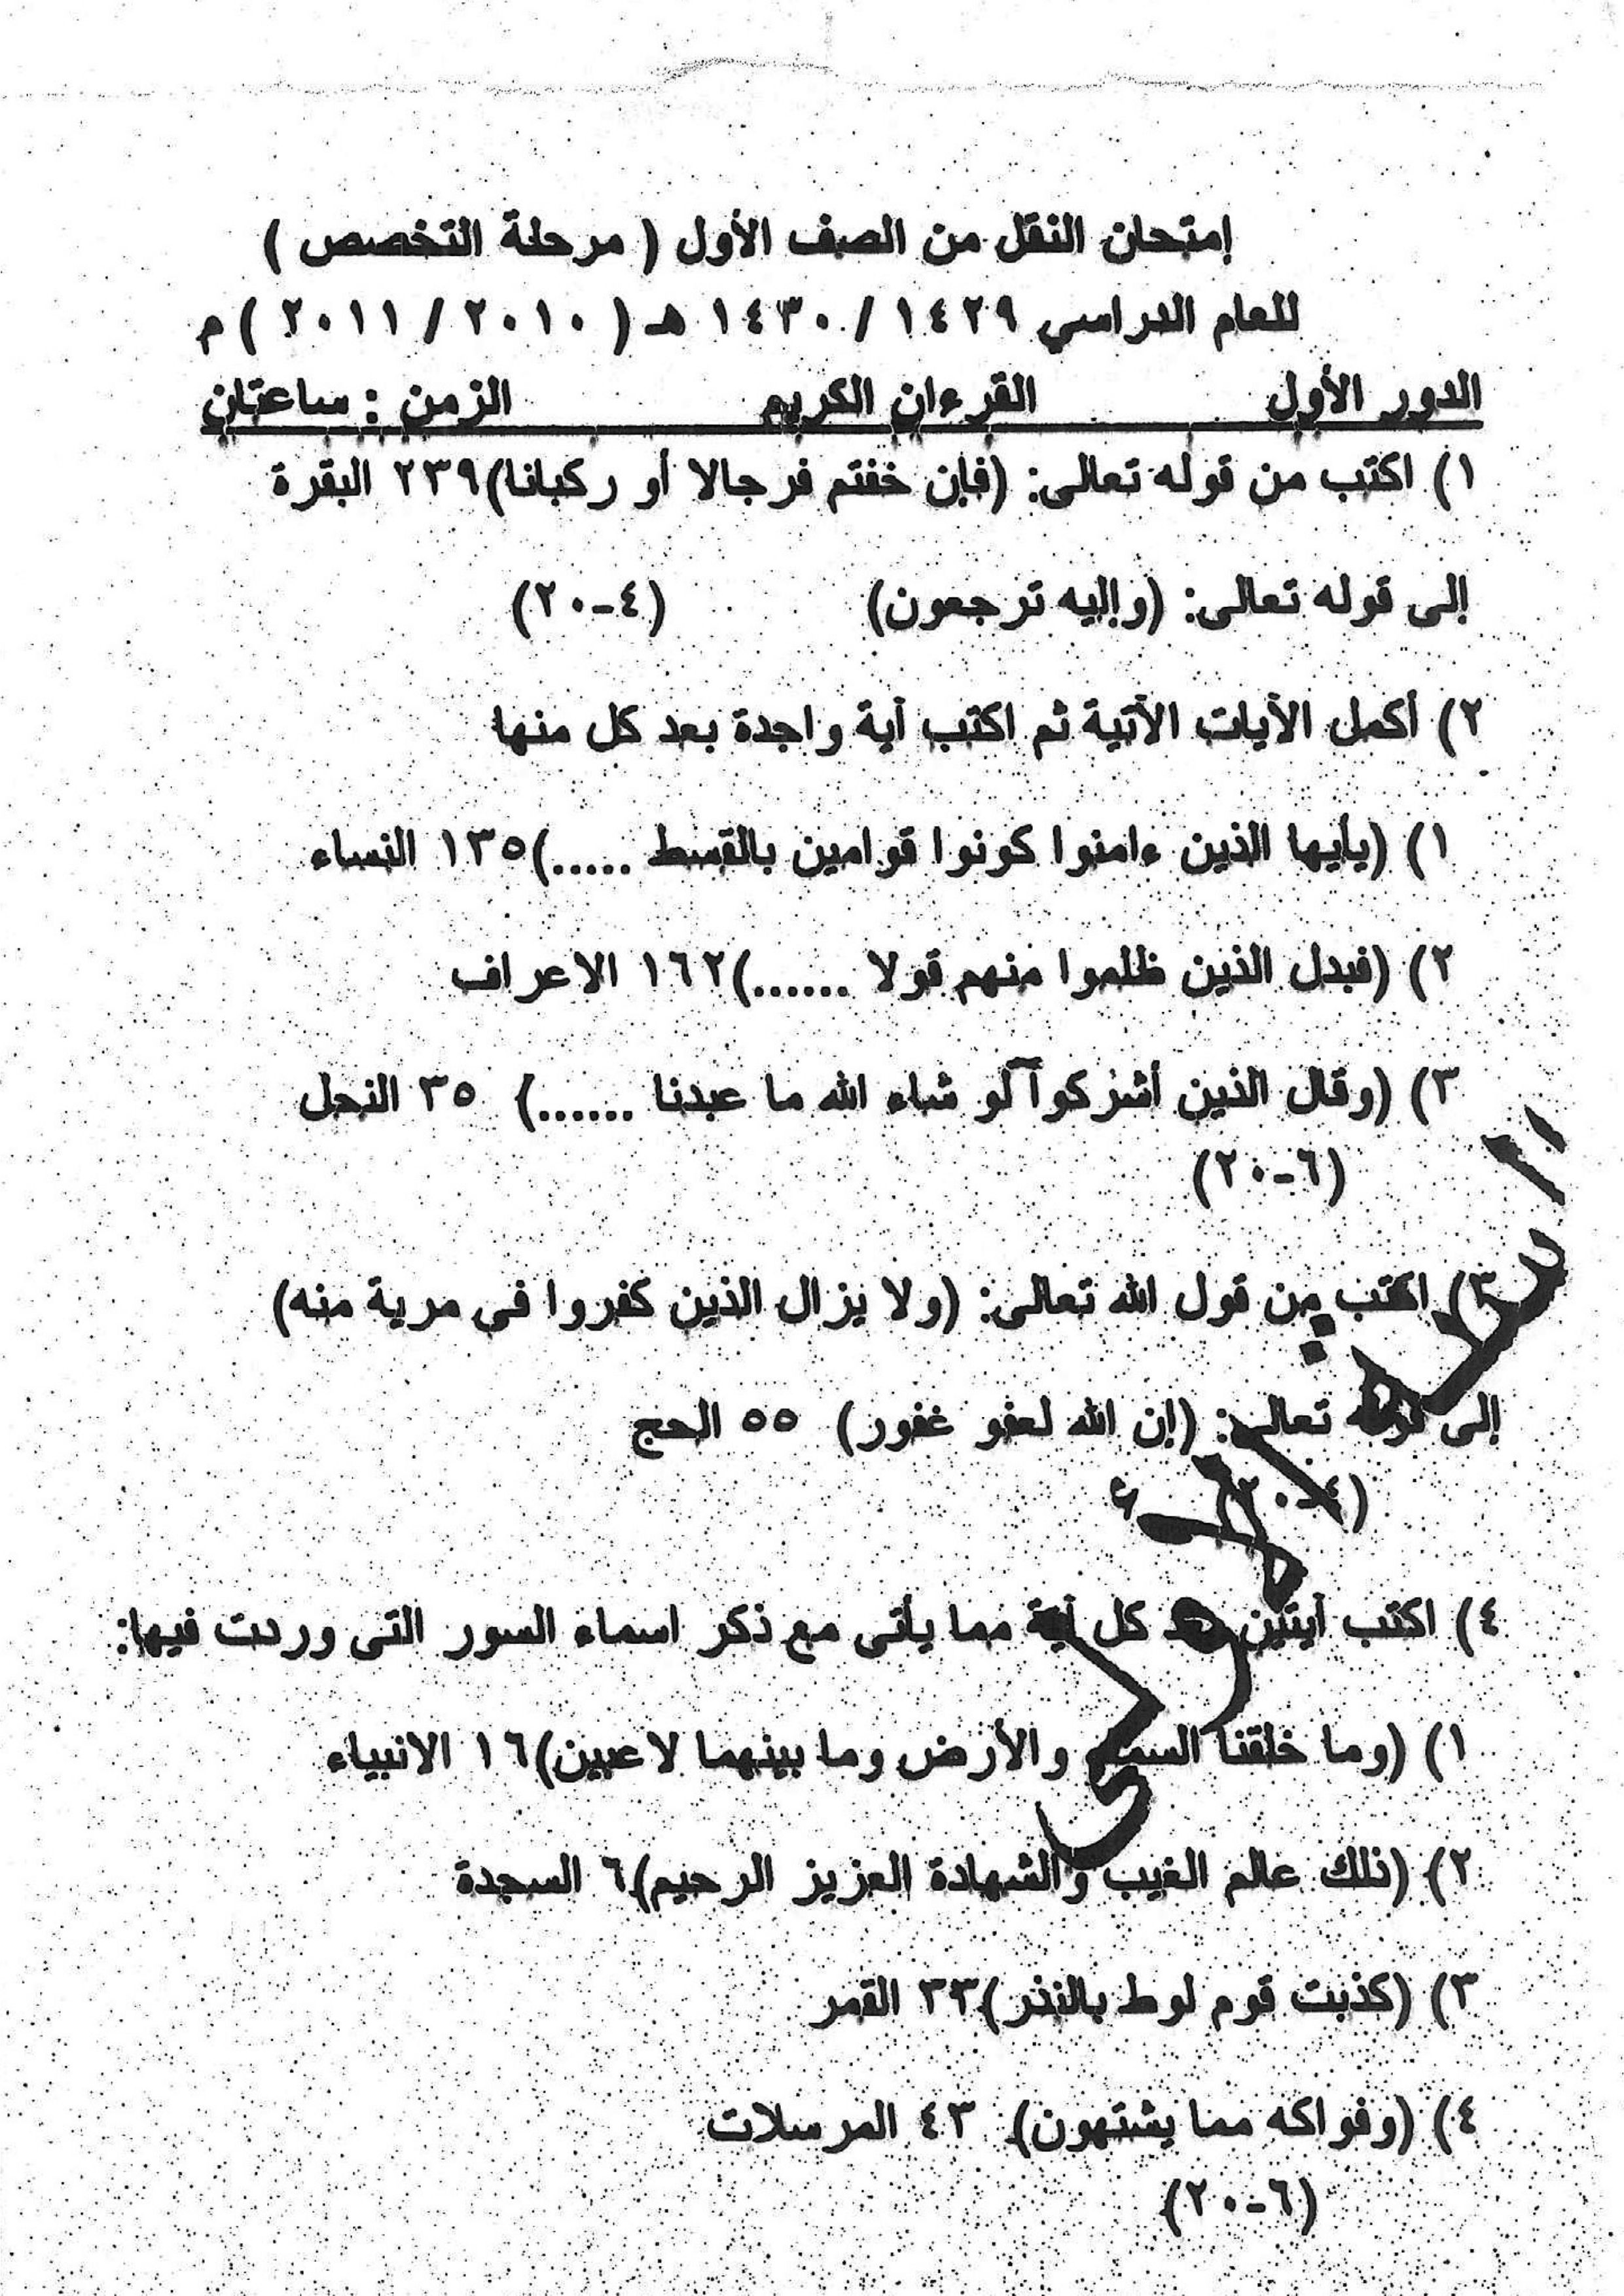 إمتحان النقل من الصف الأول ( مرحلة التخصص )
للعام الدراسي ١٤٢٩ / ١٤٣٠ هـ ( ٢٠١٠ / ٢٠١١ ) م
الدور الأول القرءان الكريم الزمن : ساعتان
١) اكتب من قوله تعالى: (فإن خفتم فرجالا أو ركبانا)٢٣٩ البقرة
إلى قوله تعالى: (وإليه ترجعون) (٤-٢٠)
٢) أكمل الآيات الآتية ثم اكتب آية واحدة بعد كل منها
١) (يأيها الذين ءامنوا كونوا قوامين بالقسط .....)١٣٥ النساء
٢) (فبدل الذين ظلموا منهم قولا ......)١٦٢ الاعراف
٣) (وقال الذين أشركوا لو شاء الله ما عبدنا ......) ٣٥ النحل
(٦-٢٠)
٣) اكتب من قول الله تعالى: (ولا يزال الذين كفروا فى مرية منه)
إلى قوله تعالى: (إن الله لعفو غفور) ٥٥ الحج
(٤-٢٠)
٤) اكتب أيتين بعد كل أية مما يأتى مع ذكر اسماء السور التى وردت فيها:
١) (وما خلقنا السماء والأرض وما بينهما لاعبين)١٦ الانبياء
٢) (ذلك عالم الغيب والشهادة العزيز الرحيم)٦ السجدة
٣) (كذبت قوم لوط بالنذر)٣٣ القمر
٤) (وفواكه مما يشتهون) ٤٣ المرسلات
(٦-٢٠)